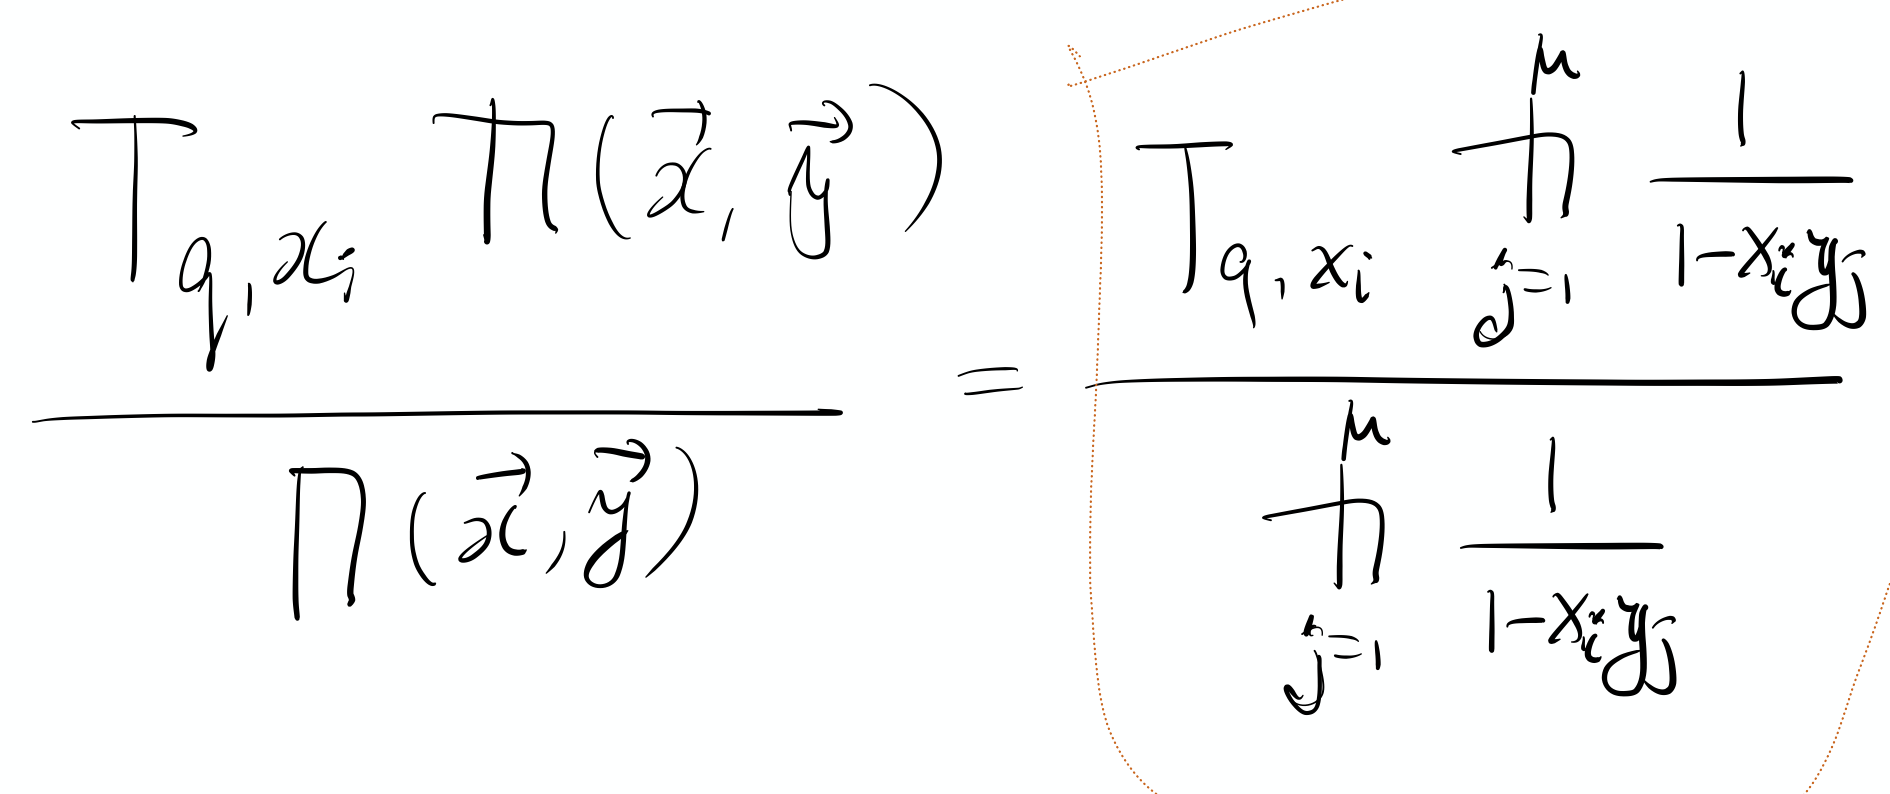 T_{q, x_i} Π(\vec{x}, \vec{y}) / Π(\vec{x}, \vec{y}) = T_{q, x_i} ∏_{j=1}^{M} 1/(1-x_i y_j) / ∏_{j=1}^{M} 1/(1-x_i y_j)